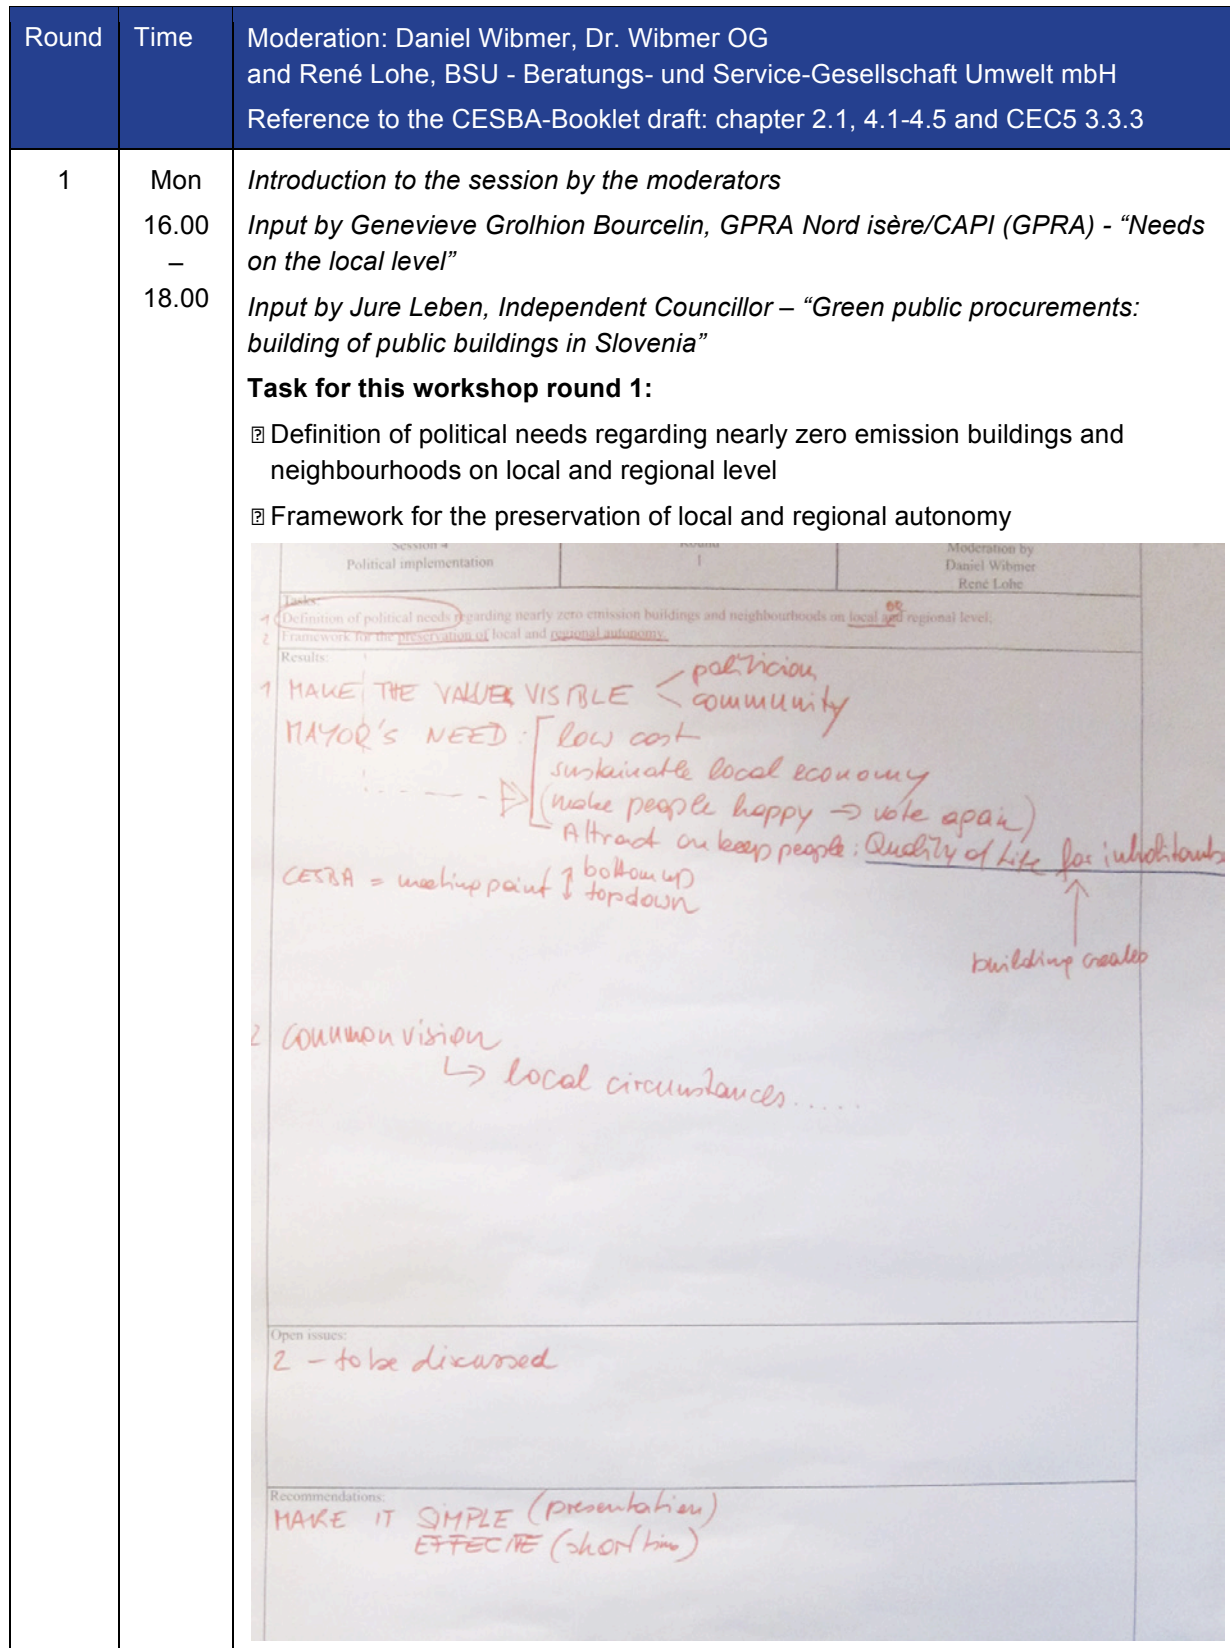 Round
Time
Moderation: Daniel Wibmer, Dr. Wibmer OG
and René Lohe, BSU - Beratungs- und Service-Gesellschaft Umwelt mbH
Reference to the CESBA-Booklet draft: chapter 2.1, 4.1-4.5 and CEC5 3.3.3
1
Mon
16.00
–
18.00
Introduction to the session by the moderators
Input by Genevieve Grolhion Bourcelin, GPRA Nord isère/CAPI (GPRA) - “Needs
on the local level”
Input by Jure Leben, Independent Councillor – “Green public procurements:
building of public buildings in Slovenia”
Task for this workshop round 1:
Definition of political needs regarding nearly zero emission buildings and
neighbourhoods on local and regional level
Framework for the preservation of local and regional autonomy
Session 4
Political implementation
Round
1
Moderation by
Daniel Wibmer
René Lohe
Tasks:
OR
1 Definition of political needs regarding nearly zero emission buildings and neighbourhoods on local and regional level.
2 Framework for the preservation of local and regional autonomy.
Results:
1 MAKE THE VALUE VISIBLE < politician
community
MAYOR'S NEED: low cost
sustainable local economy
(make people happy → vote again)
Attract or keep people: Quality of Life for inhabitants
CESBA = meeting point ↕ bottom up
topdown
building creates
2 common vision
↳ local circumstances.....
Open issues:
2 – to be discussed
Recommendations:
MAKE IT SIMPLE (presentation)
EFFECTIVE (short time)